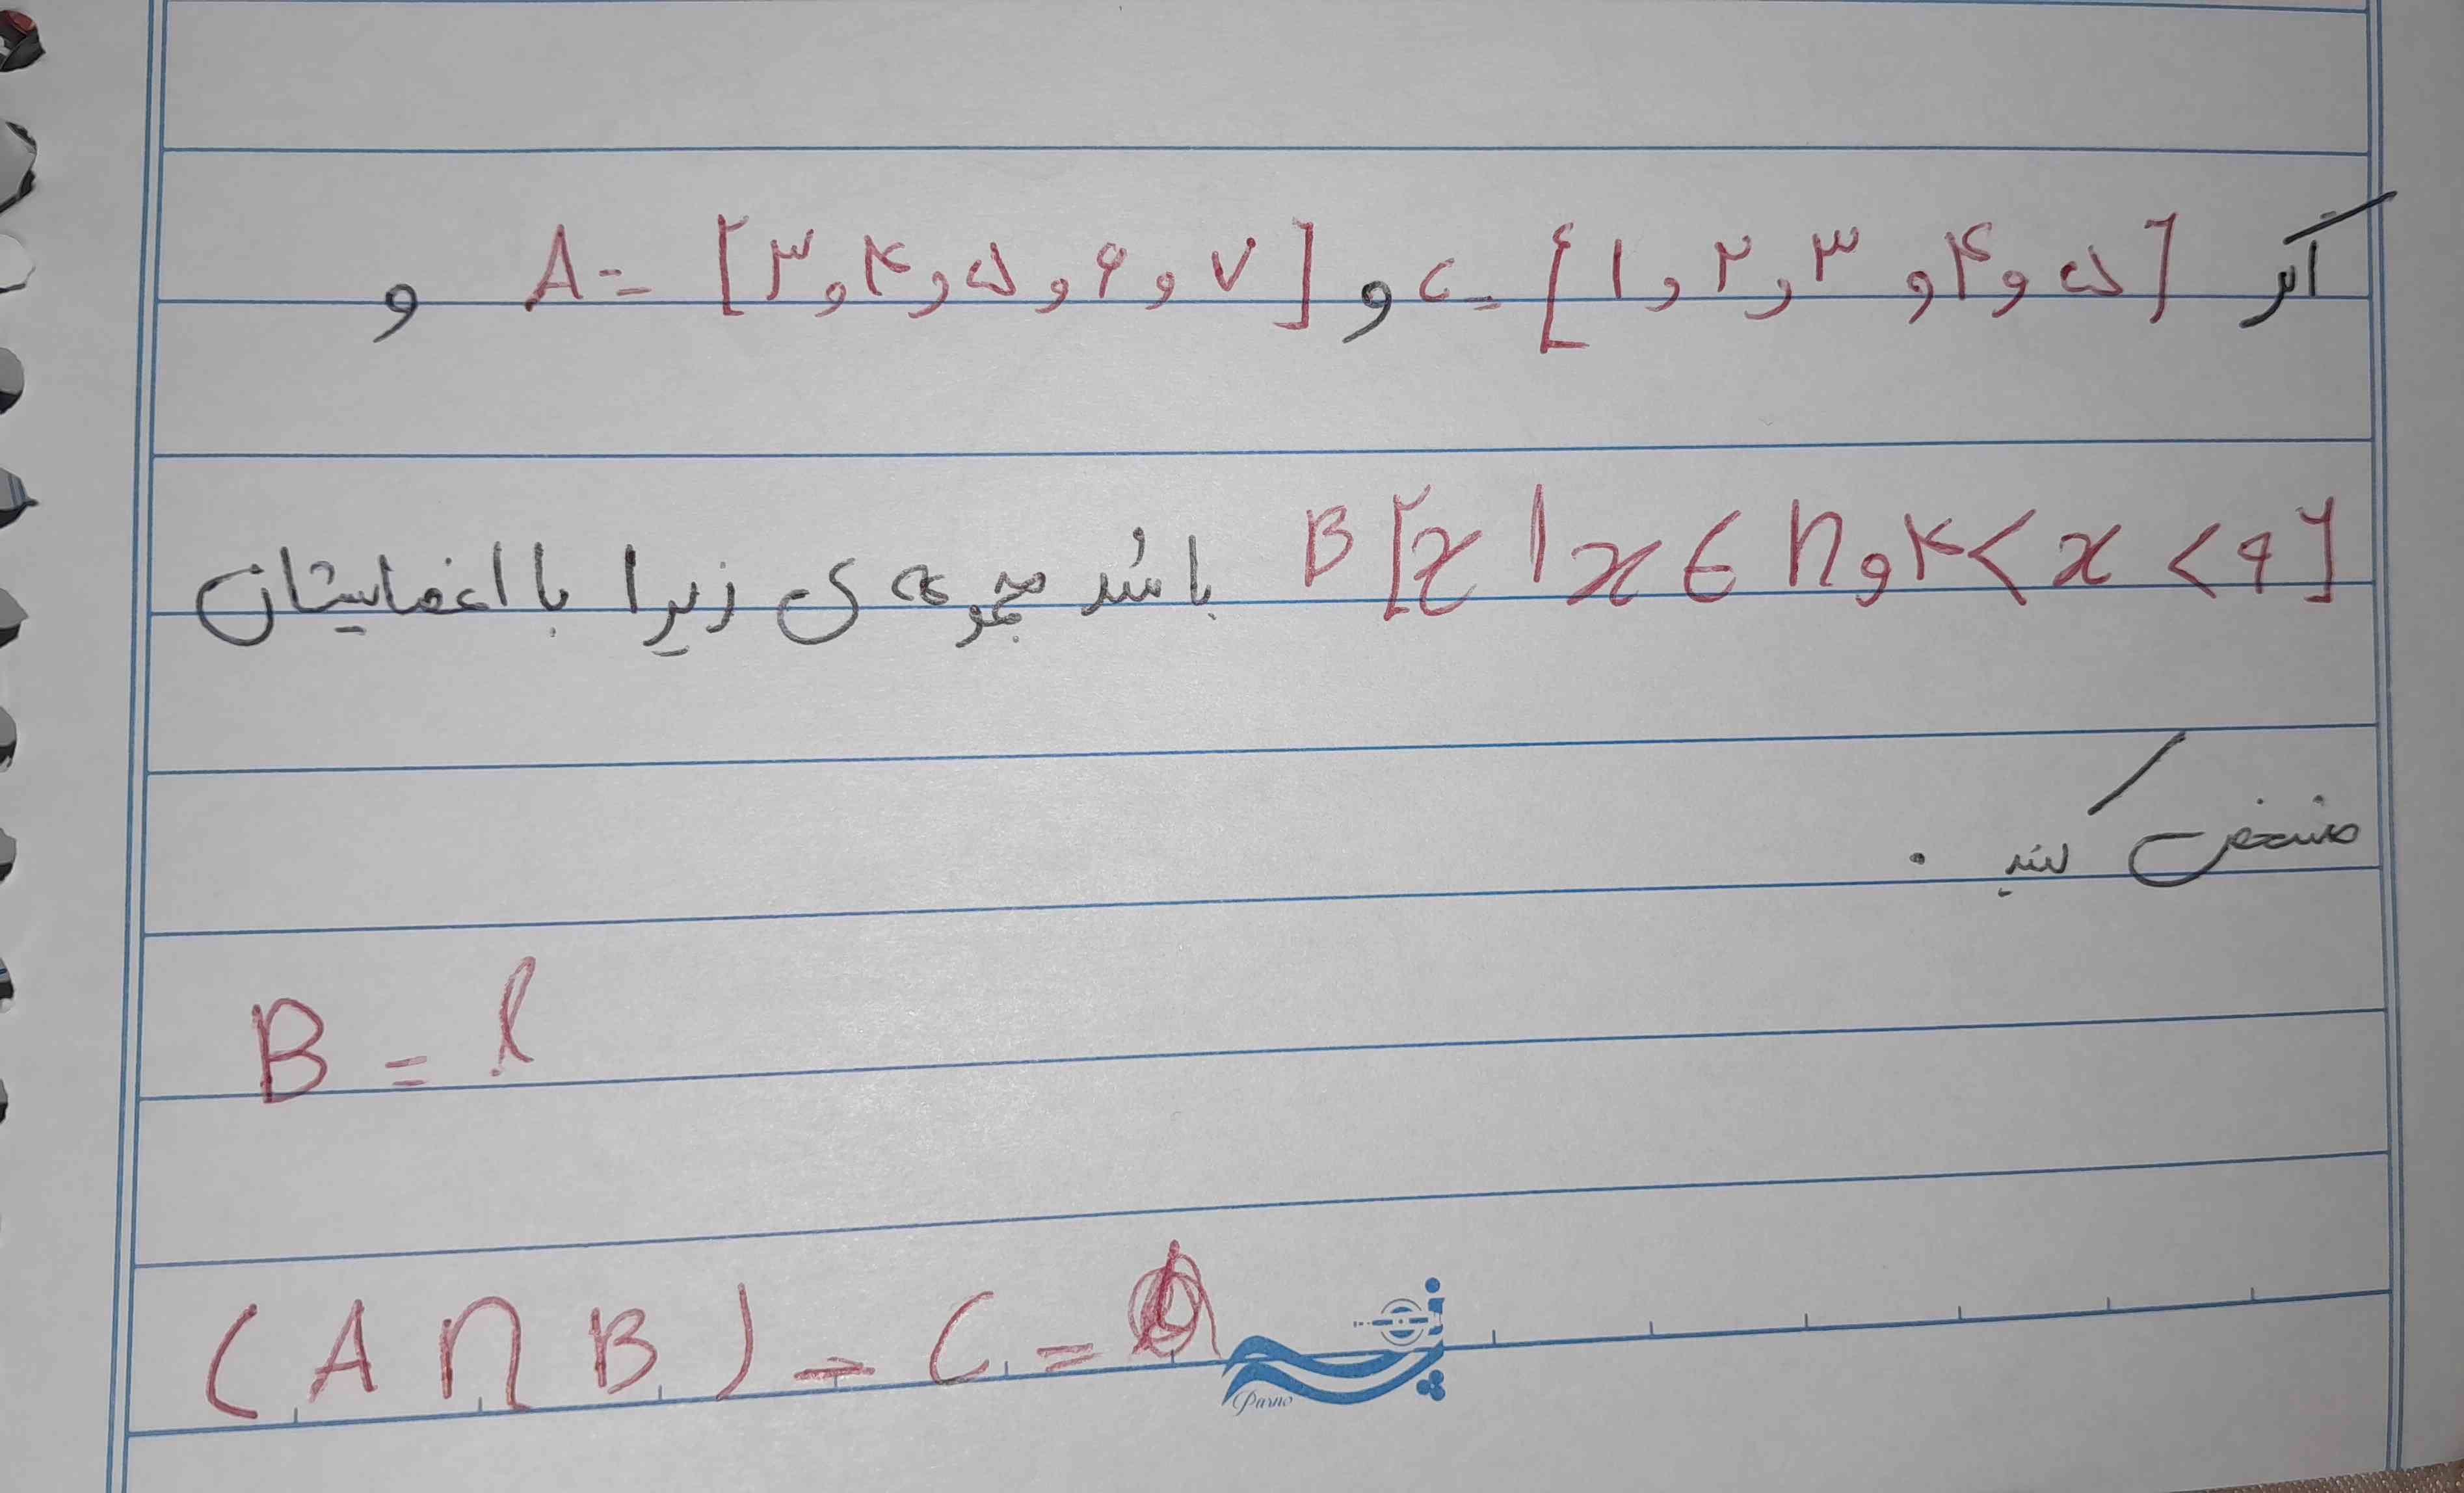 اگر C = {۱,۲,۳,۴,۵} و A = {۳,۴,۵,۶,۷} و
B {x | x ∈ n , ۴ < x < ۹} باشد مجموعه ی زیرا با اعضایشان
مشخص کنید .
B =
(A ∩ B) - C =
Parno